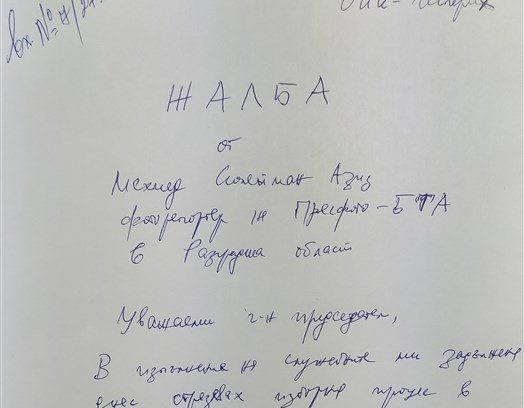 вх. №
ЖАЛБА
от
Мехмед Сюлейман Азиз
фоторепортер на Пресфото-БТА
в Разградска област
Уважаеми г-н председател,
В изпълнение на служебните ми задължения
днес отразявах изборния процес в